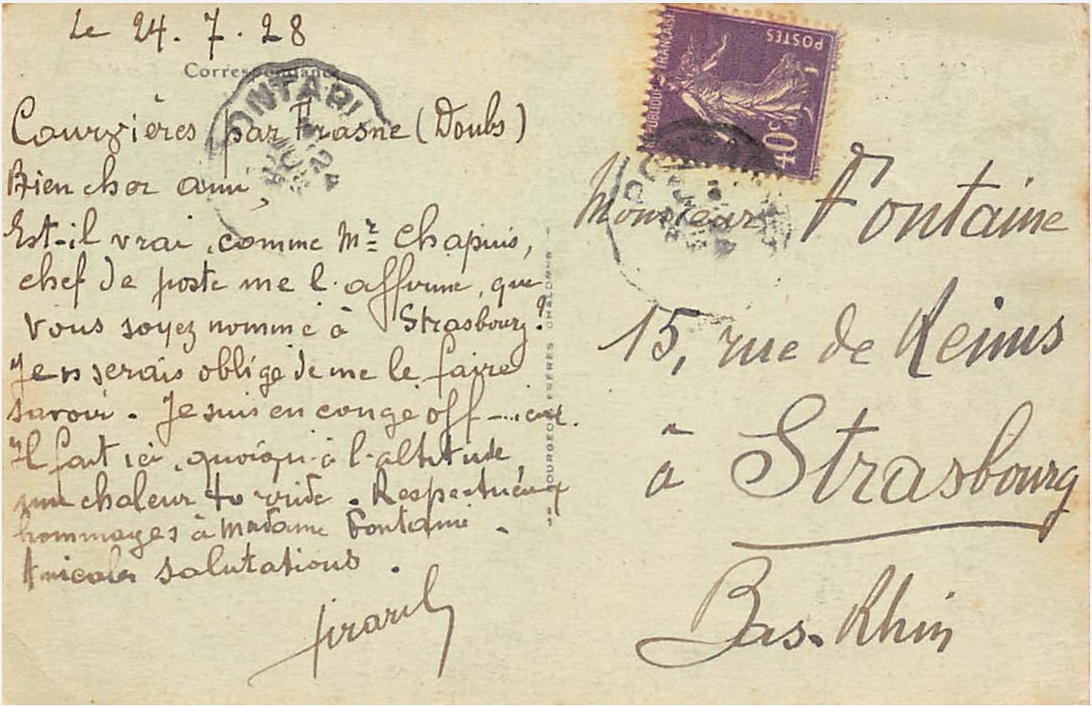 Le 24.7.28
Correspondance
Courvières par Frasne (Doubs)
Bien cher ami,
Est-il vrai, comme Mr Chapuis,
chef de poste me l'affirme, que
vous soyez nommé à Strasbourg?
Je serais obligé de me le faire
savoir. Je suis en congé
Il fait ici, quoiqu'à l'altitude,
une chaleur torride. Respectueux
hommages à Madame Fontaine.
Amicales salutations.
Girard
PONTARL
REPUBLIQUE FRANÇAISE
POSTES
40c
Monsieur Fontaine
15, rue de Reims
à Strasbourg
Bas-Rhin
BOURGEOIS FRERES CHALON-S